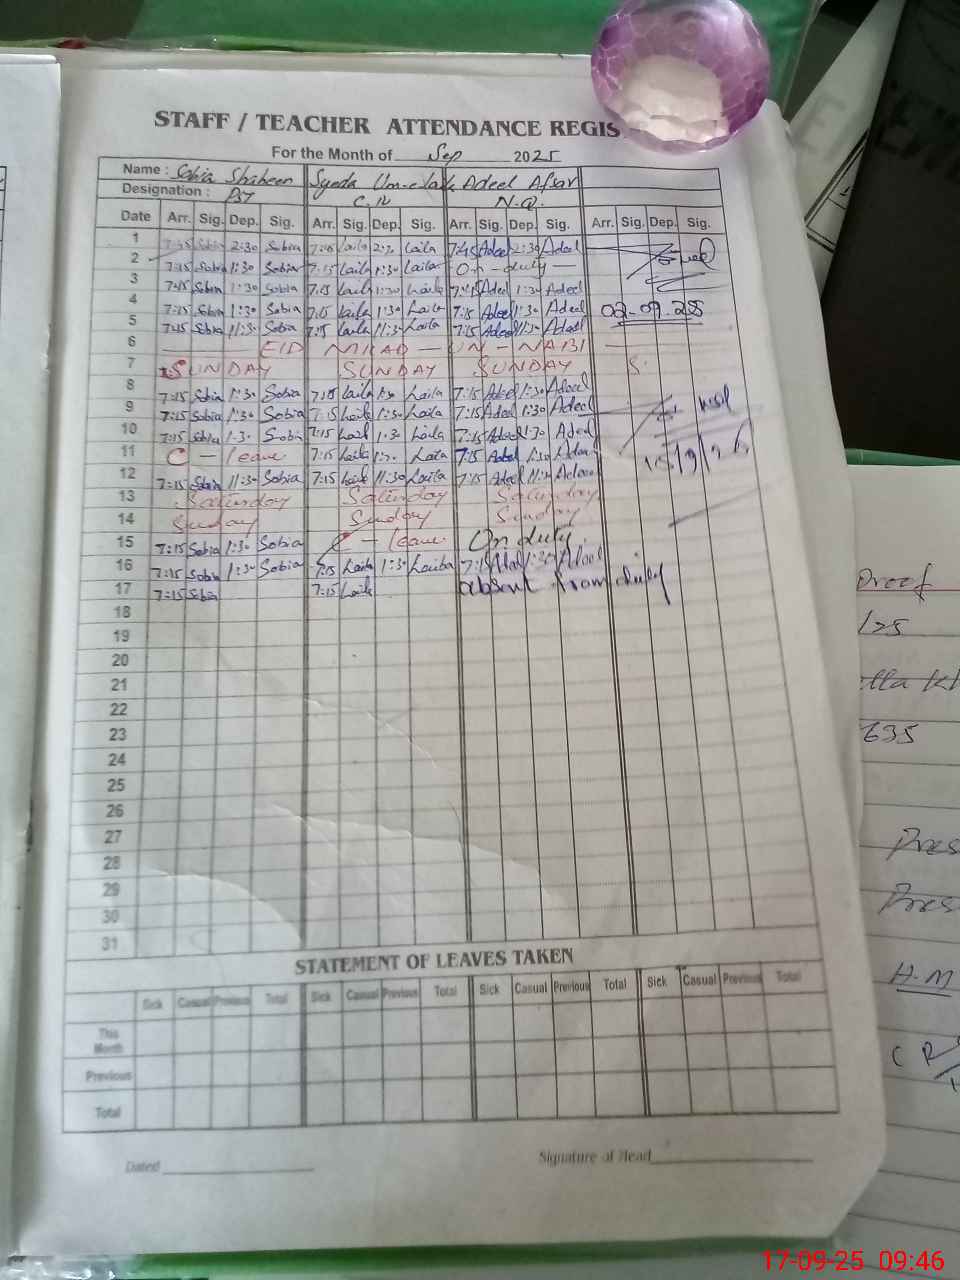 STAFF / TEACHER ATTENDANCE REGIS
For the Month of Sep 2025
Name : Sobia Shaheen Syeda Um-e-Laila Adeel Afsar
Designation : PST C.N N.Q.
Date Arr. Sig. Dep. Sig. Arr. Sig. Dep. Sig. Arr. Sig. Dep. Sig. Arr. Sig. Dep. Sig.
1 7:45 Sobia 2:30 Sobia 7:45 Laila 2:30 Laila 7:45 Adeel 2:30 Adeel
2 7:15 Sobia 1:30 Sobia 7:15 Laila 1:30 Laila - On - duty -
3 7:15 Sobia 1:30 Sobia 7:15 Laila 1:30 Laila 7:15 Adeel 1:30 Adeel
4 7:15 Sobia 1:30 Sobia 7:15 Laila 1:30 Laila 7:15 Adeel 1:30 Adeel 02-09-25
5 7:15 Sobia 11:30 Sobia 7:15 Laila 11:30 Laila 7:15 Adeel 11:30 Adeel
6 EID MILAD - UN - NABI
7 SUNDAY SUNDAY SUNDAY S.
8 7:15 Sobia 1:30 Sobia 7:15 Laila 1:30 Laila 7:15 Adeel 1:30 Adeel
9 7:15 Sobia 1:30 Sobia 7:15 Laila 1:30 Laila 7:15 Adeel 1:30 Adeel
10 7:15 Sobia 1:30 Sobia 7:15 Laila 1:30 Laila 7:15 Adeel 1:30 Adeel
11 C - leave 7:15 Laila 1:30 Laila 7:15 Adeel 1:30 Adeel
12 7:15 Sobia 11:30 Sobia 7:15 Laila 11:30 Laila 7:15 Adeel 11:30 Adeel
13 Saturday Saturday Saturday
14 Sunday Sunday Sunday
15 7:15 Sobia 1:30 Sobia C - leave On duty
16 7:15 Sobia 1:30 Sobia 7:15 Laila 1:30 Laiba 7:15 Adeel 1:30 Adeel
17 7:15 Sobia 7:15 Laila absent from duty
18
19
20
21
22
23
24
25
26
27
28
29
30
31
STATEMENT OF LEAVES TAKEN
Sick Casual Previous Total Sick Casual Previous Total Sick Casual Previous Total Sick Casual Previous Total
This Month
Previous
Total
Dated
Signature of Head
Proof
/25
635
Pres
Pres
H.M
C R
17-09-25 09:46